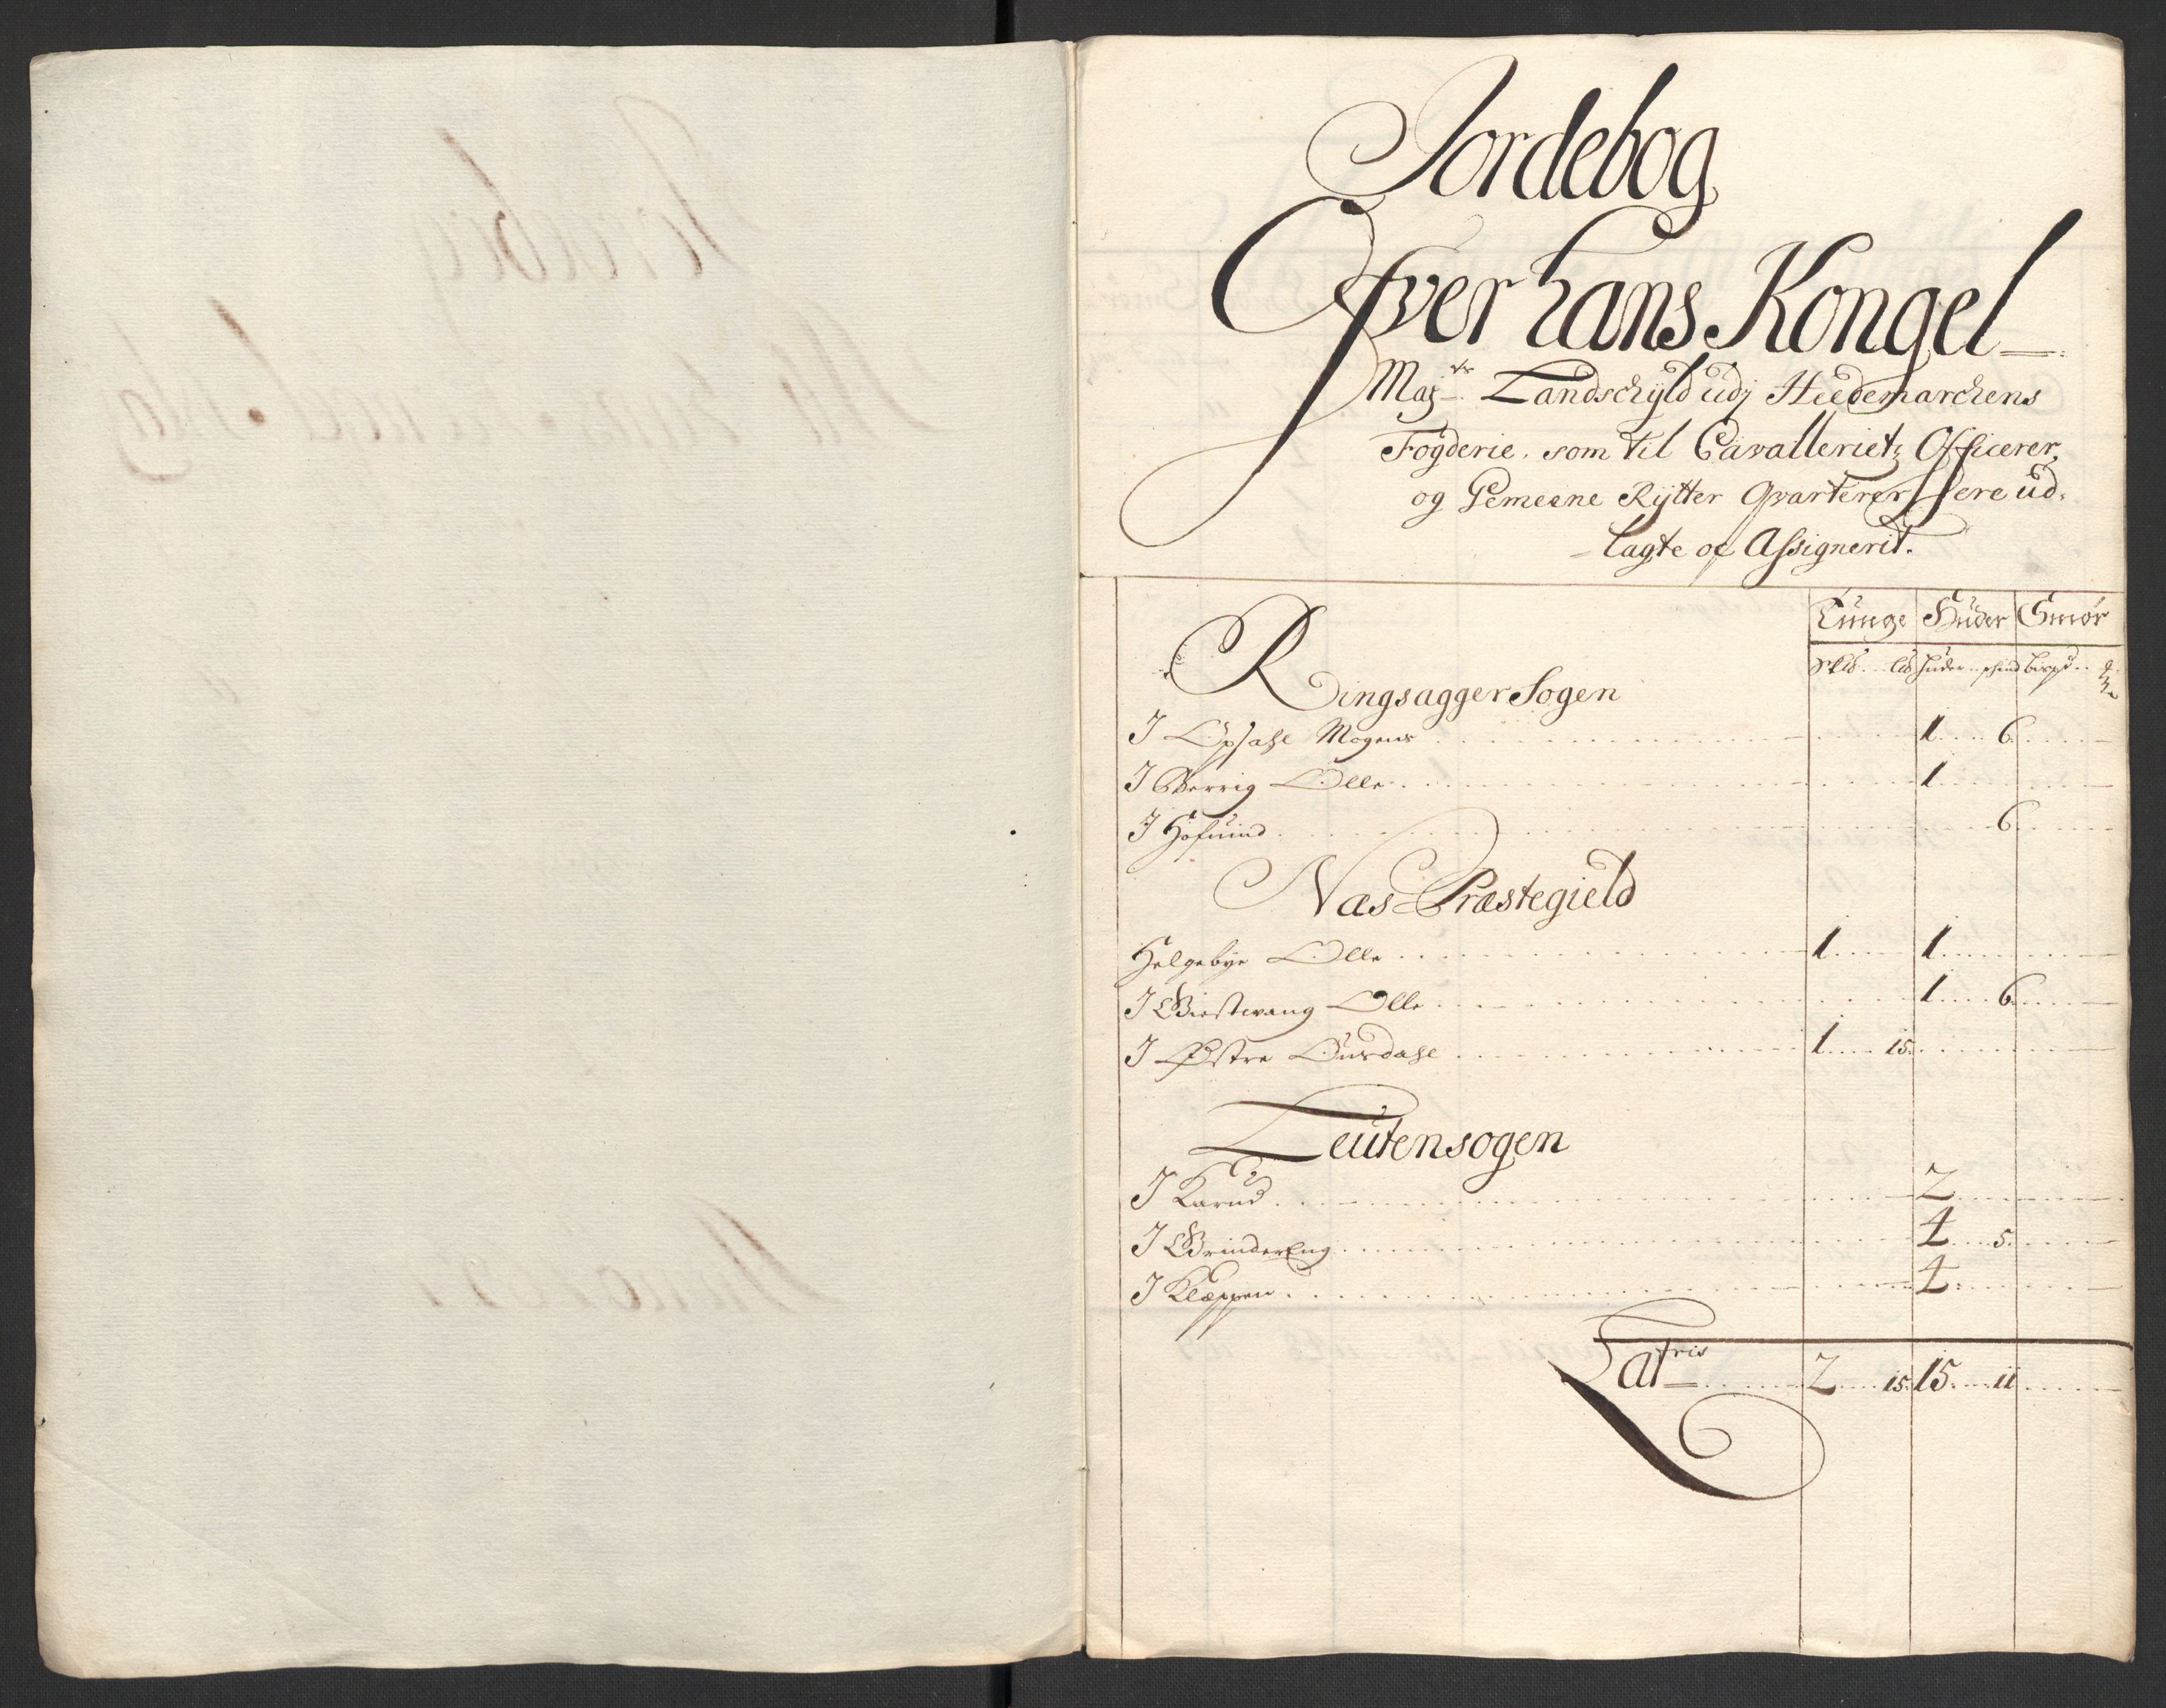 Jordebog
Ofver hans Kongel
Maj.ts Landschyld udj Heedemarchens
Fogderie, som til Cavalleriets Officerer,
og Gemeene Rÿtter Qvarterer ere ud-
lagte og Assignerit.
Tunge Huder Smør
Sk℔ L℔ Huder schind
Ringsagger Sogen
J Opsahl Mogens 1 6
J Berrig Olle 1
J Hofuind 6
Næs Præstegield
Helgebye Olle 1 1
J Giestwang Olle 1 6
J Østre Ousdahl 1 15
Leutensogen
J Karud 2
J GrinderEng 4 5
J Klæppen 4
Latris 2 15 15 11